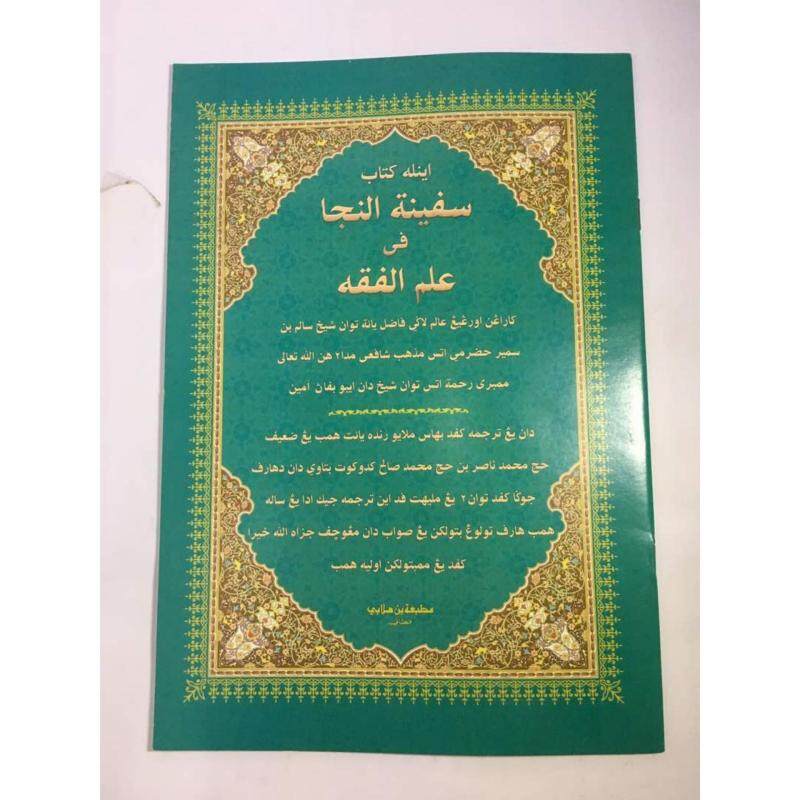 اينله كتاب
سفينة النجا
فى
علم الفقه
كاراڠن اورڠيڠ عالم لاڬى فاضل يائة توان شيخ سالم بن
سمير حضرمي اتس مذهب شافعى مدا٢ هن الله تعالى
ممبرى رحمة اتس توان شيخ دان ايبو بفان آمين
دان يڠ ترجمه كفد بهاس ملايو رنده يائت همب يڠ ضعيف
حج محمد ناصر بن حج محمد صالح كدوكوت بتاوي دان دهارف
جوڬا كفد توان٢ يڠ مليهت فد اين ترجمه جيك ادا يڠ ساله
همب هارف تولوڠ بتولكن يڠ صواب دان مڠوچف جزاه الله خيرا
كفد يڠ ممبتولكن اوليه همب
مطبعة بن هلابي